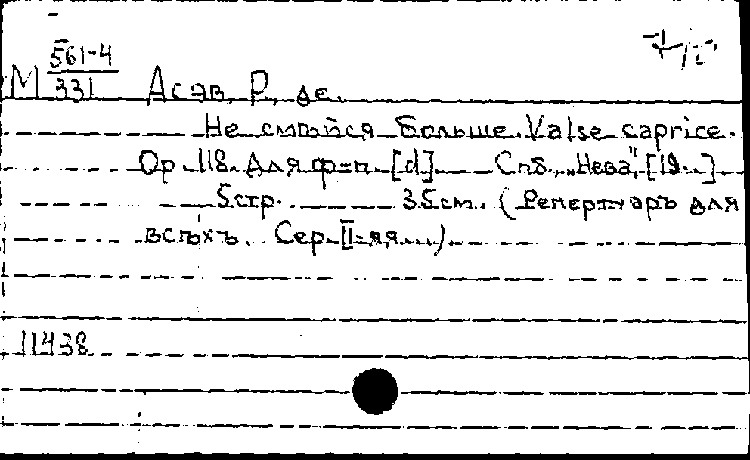 М 561-4
331
Асяв, Р. де.
Не смѣйся больше. Valse caprice.
Op. 118. Для ф-п. [d]. Спб., „Нева", [19..].
5 стр. 35 см. (Репертуаръ для
всѣхъ. Сер. II-яя...).
11438